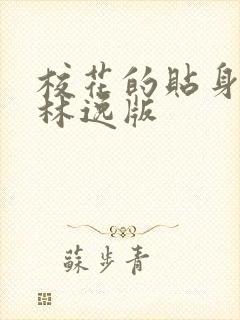 校花的貼身
林逸版
蘇步青